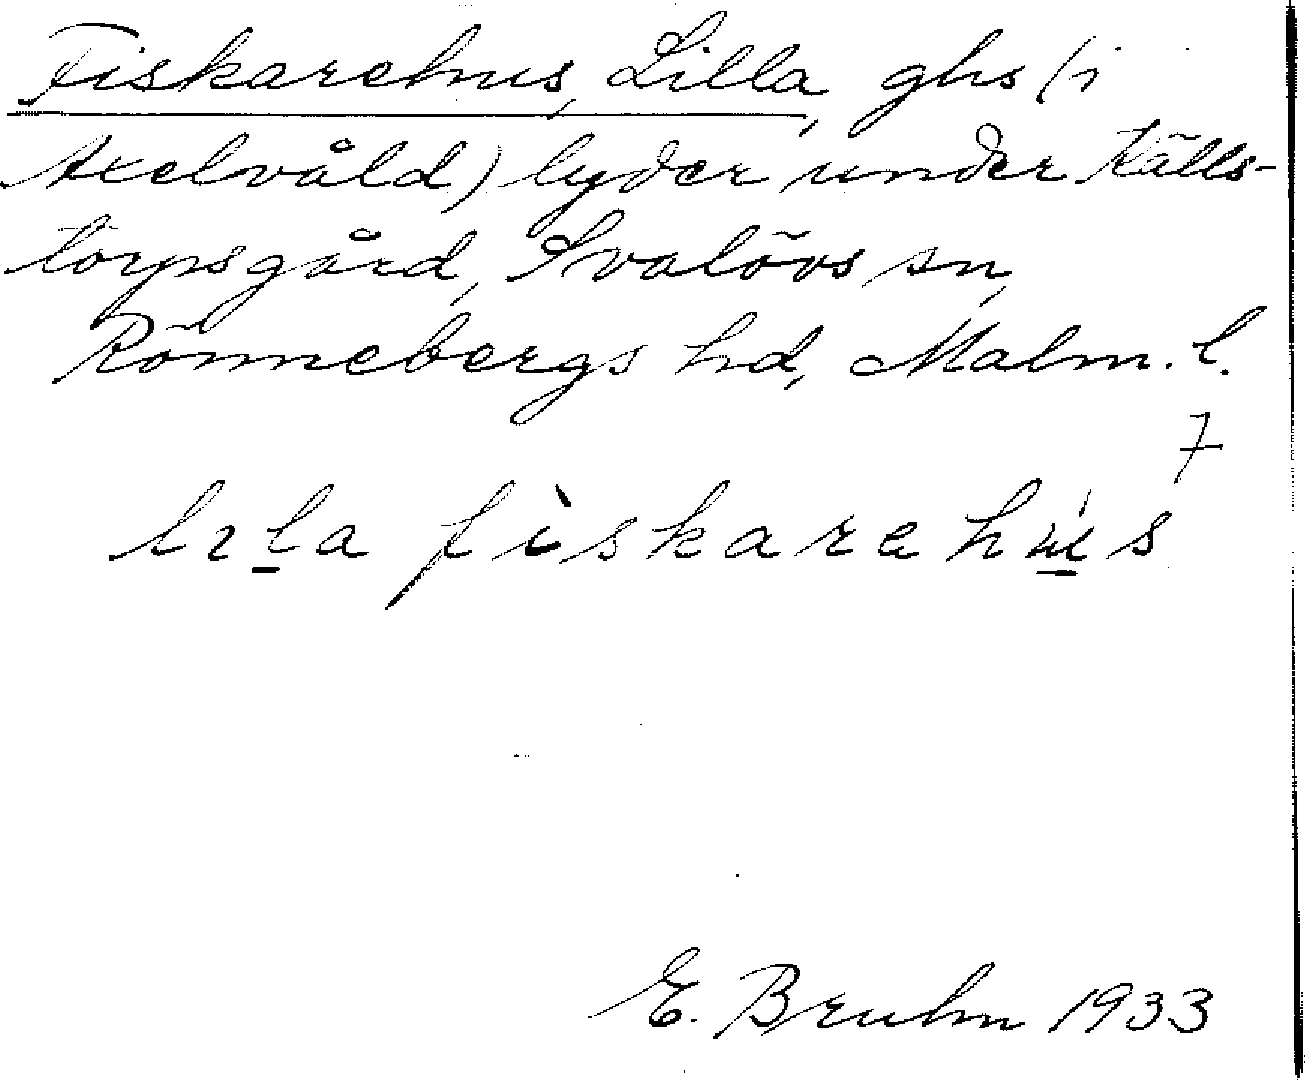 Fiskarehus, Lilla, ghs (i
Axelvåld) lyder under Källs-
torpsgård, Svalövs sn,
Rönnebergs hd, Malm. l.
7
lıla fìskarehu̍s
E. Bruhn 1933